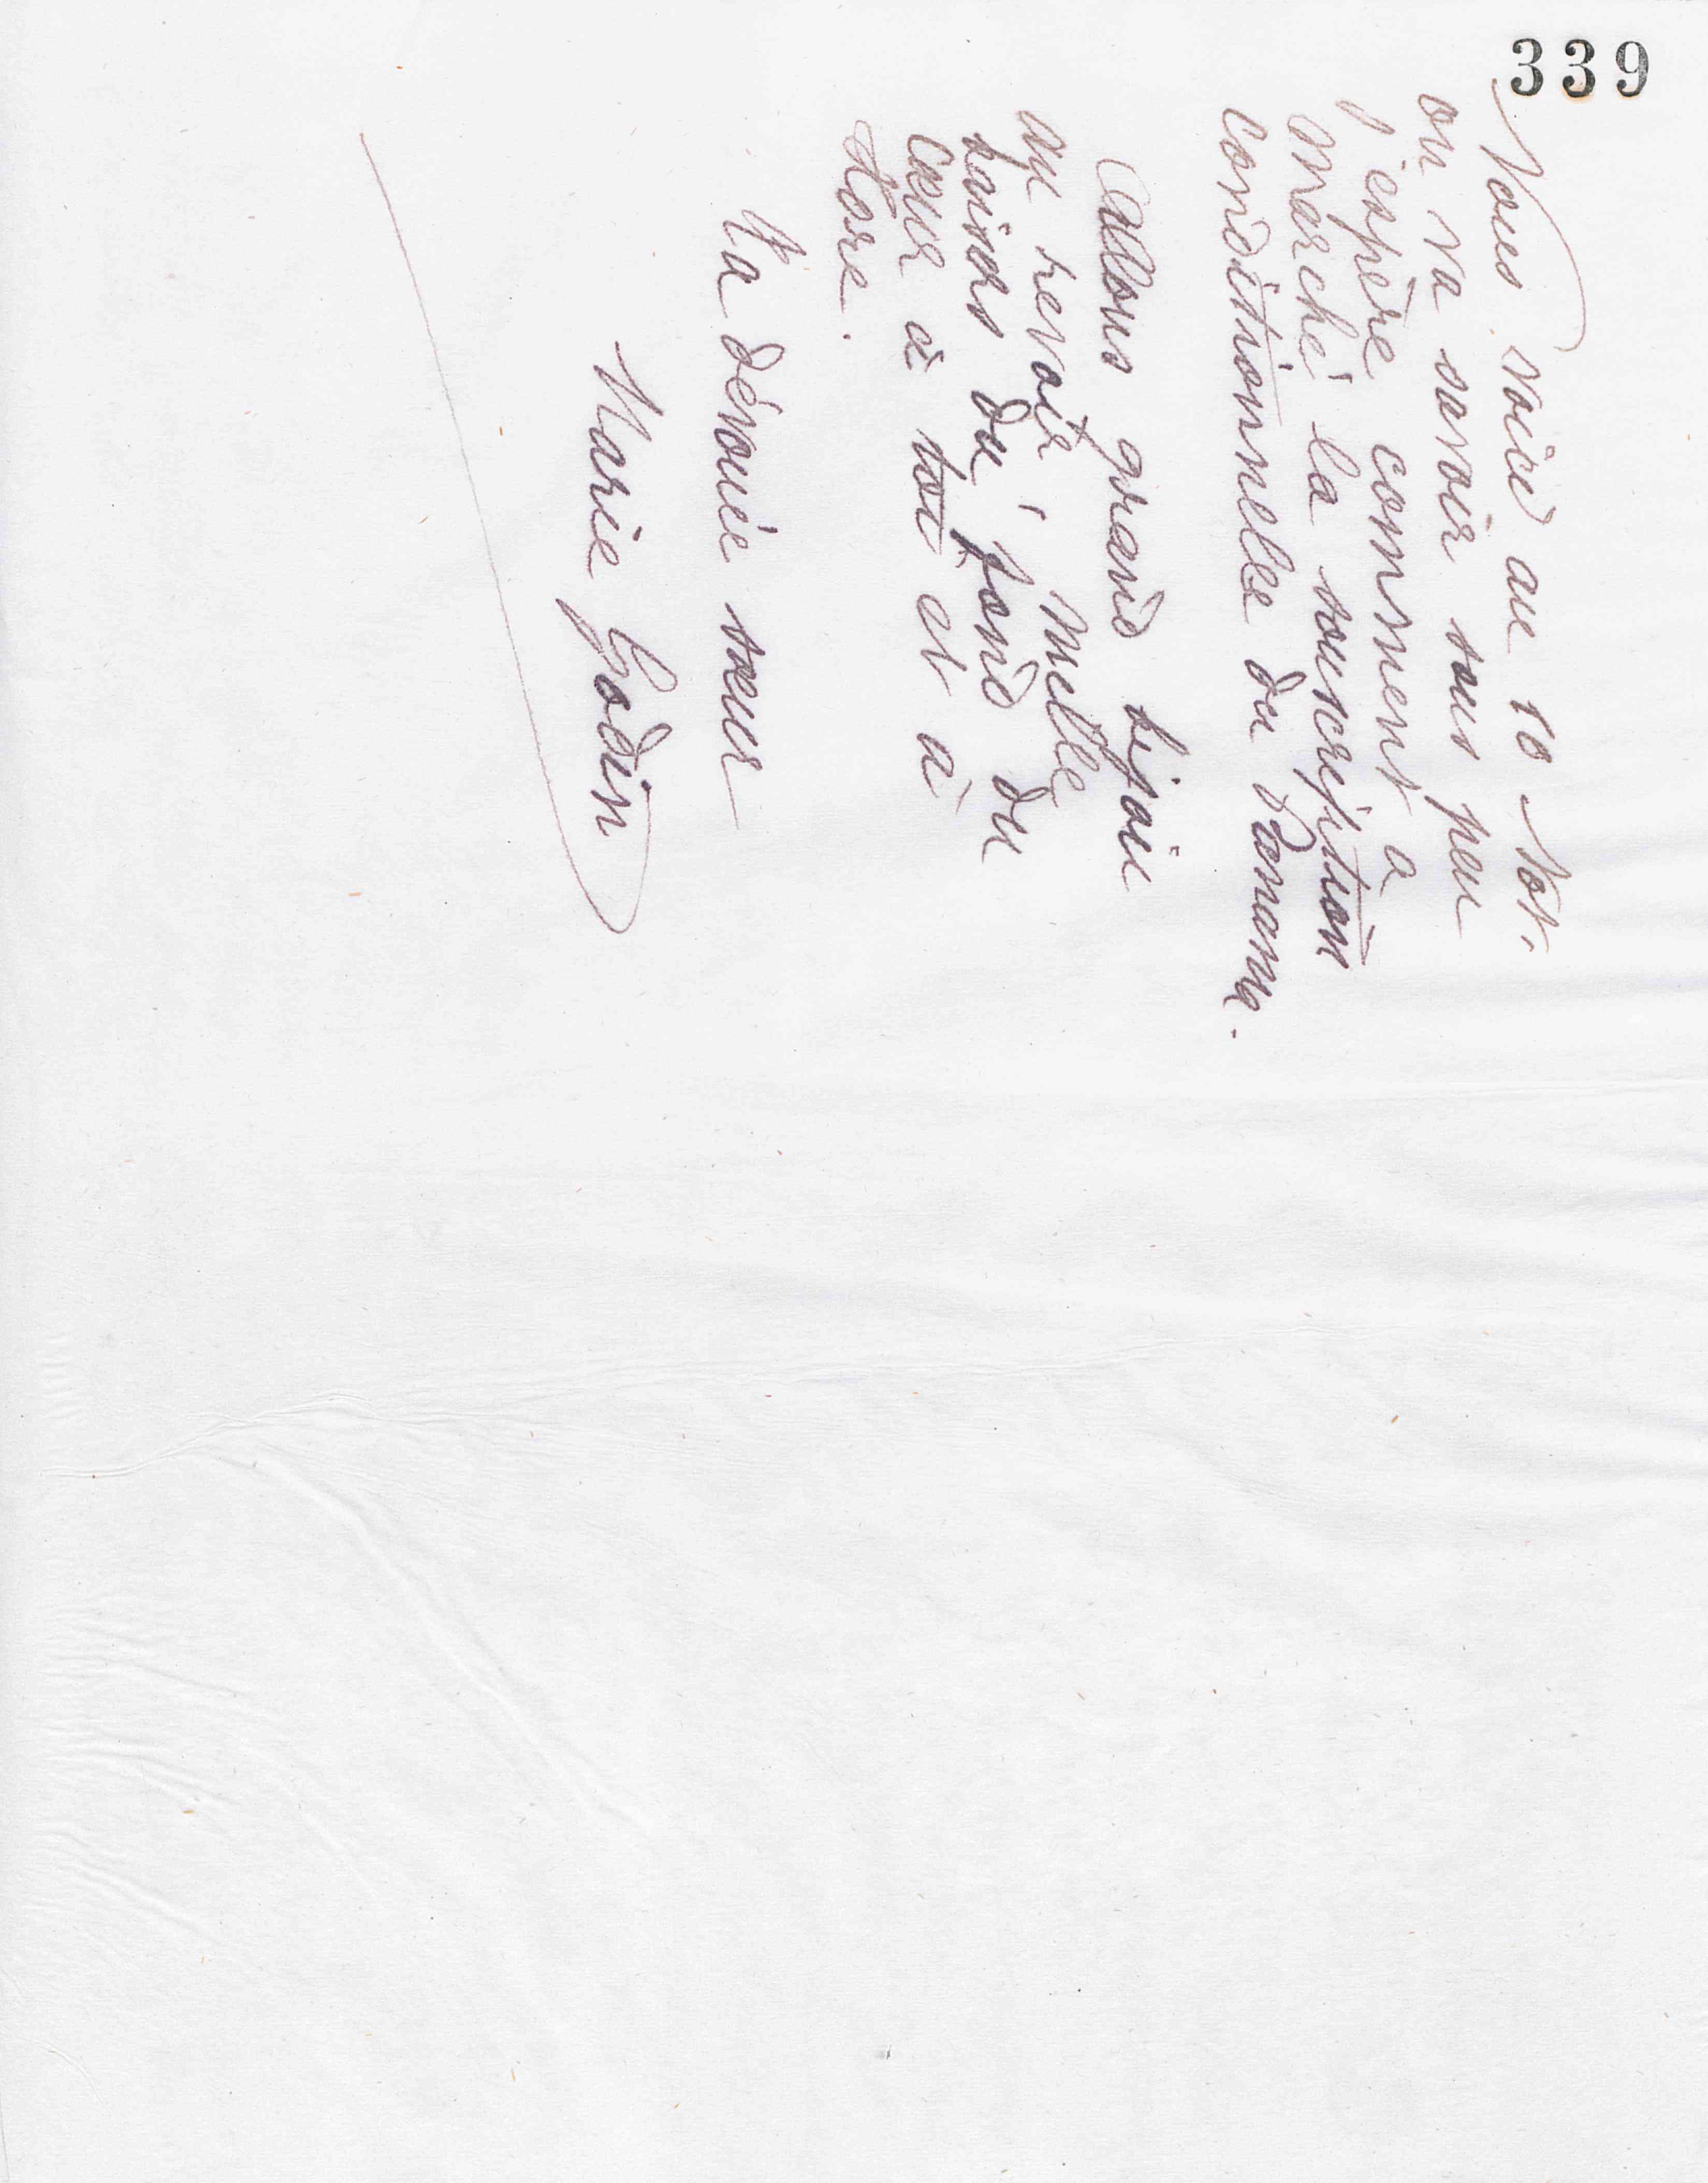 339
Nous voici au 10 Xbr.
on va savoir sous peu
j'espère comment a
marché la souscription
conditionnelle du Panama.
Allons grand bijou
au revoir, mille
baisers du fond du
cœur à toi et à
Flore.
Ta dévouée sœur
Marie Godin